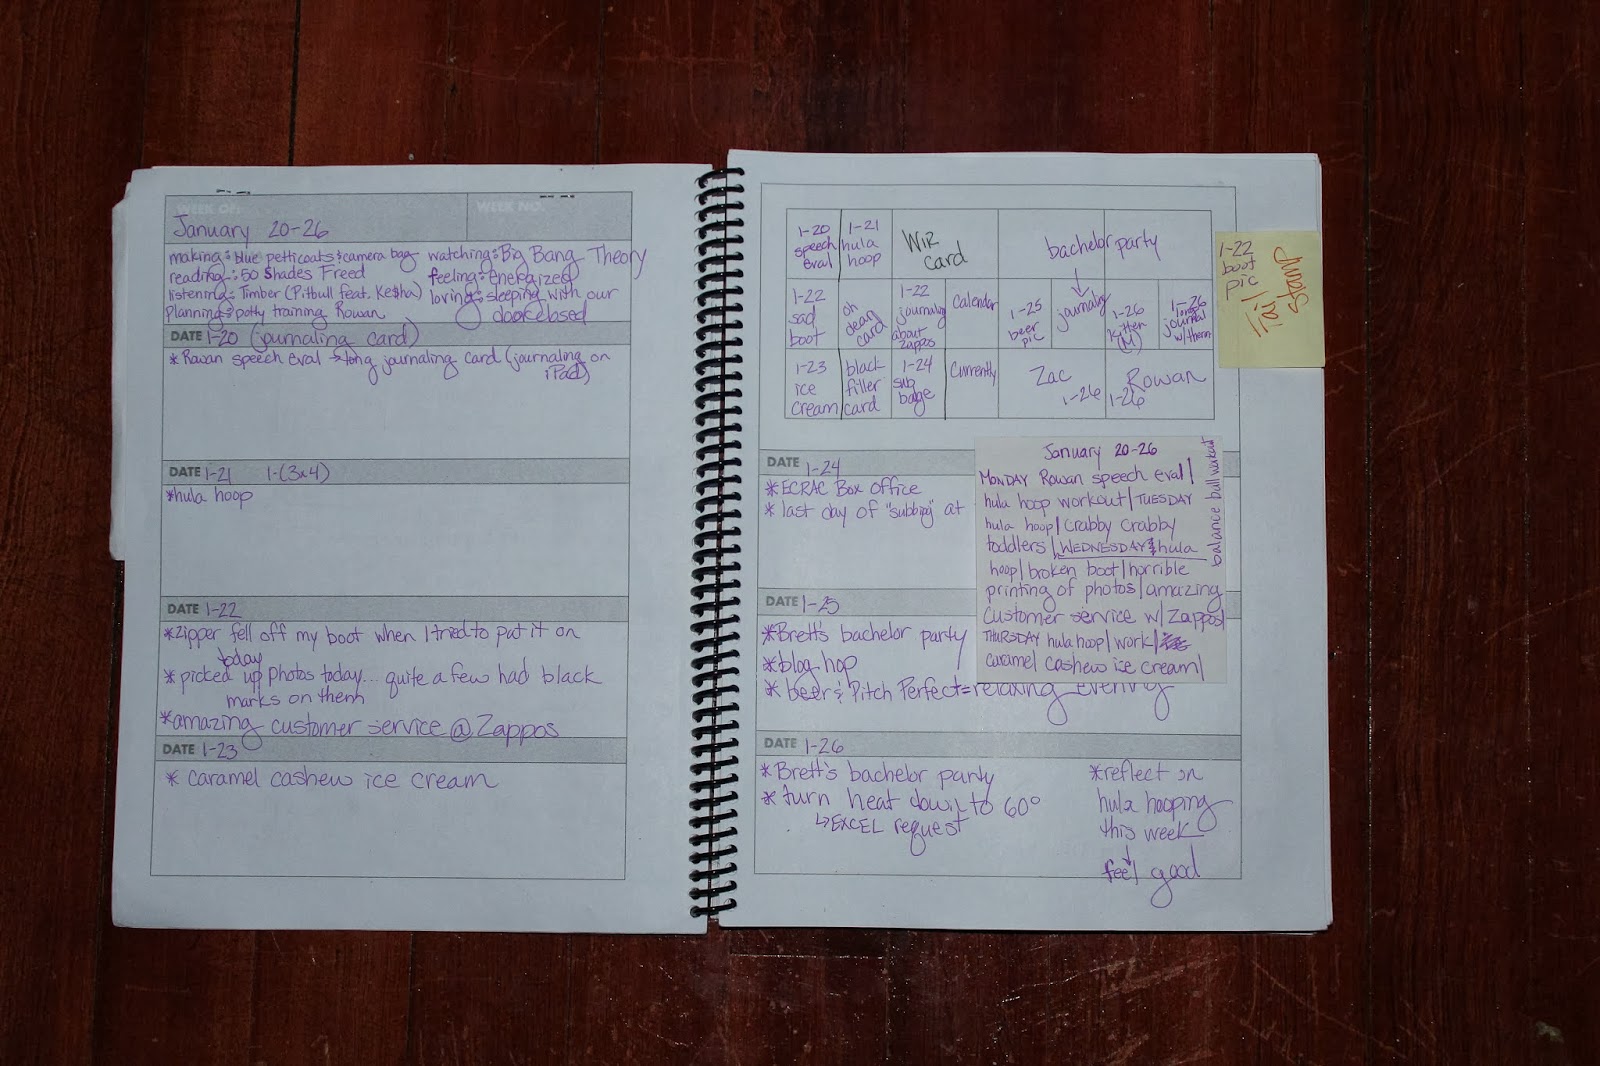 WEEK OF: WEEK NO.
January 20-26
making: blue petticoats & camera bag
reading: 50 Shades Freed
listening: Timber (Pitbull feat. Ke$ha)
planning: potty training Rowan
watching: Big Bang Theory
feeling: energized
loving: sleeping with our
door closed
DATE 1-20 (journaling card)
* Rowan speech eval → long journaling card (journaling on
iPad)
DATE 1-21 1-(3x4)
*hula hoop
DATE 1-22
*Zipper fell off my boot when I tried to put it on
today
* picked up photos today... quite a few had black
marks on them
*amazing customer service @ Zappos
DATE 1-23
* caramel cashew ice cream
1-20
speech
eval
1-21
hula
hoop
WIR
card
bachelor party
1-22
sad
boot
oh
dear
card
1-22
journaling
about
zappos
Calendar
1-25
beer
pic
journaling
1-26
kitten
(M)
1-26
long
journal
w/them
1-23
ice
cream
black
filler
card
1-24
sub
badge
Currently
Zac
1-26
Rowan
1-26
1-22
boot
pic
DATE 1-24
* ECRAC Box Office
* last day of "subbing" at
DATE 1-25
*Brett's bachelor party
*blog hop
* beer & Pitch Perfect = relaxing evening
DATE 1-26
*Brett's bachelor party
* turn heat down to 60°
↳ EXCEL request
*reflect on
hula hooping
this week
↓
feel good
January 20-26
MONDAY Rowan speech eval |
hula hoop workout | TUESDAY
hula hoop | crabby crabby
toddlers | WEDNESDAY hula
hoop | broken boot | horrible
printing of photos | amazing
customer service w/ Zappos |
THURSDAY hula hoop | work |
caramel cashew ice cream |
balance ball workout